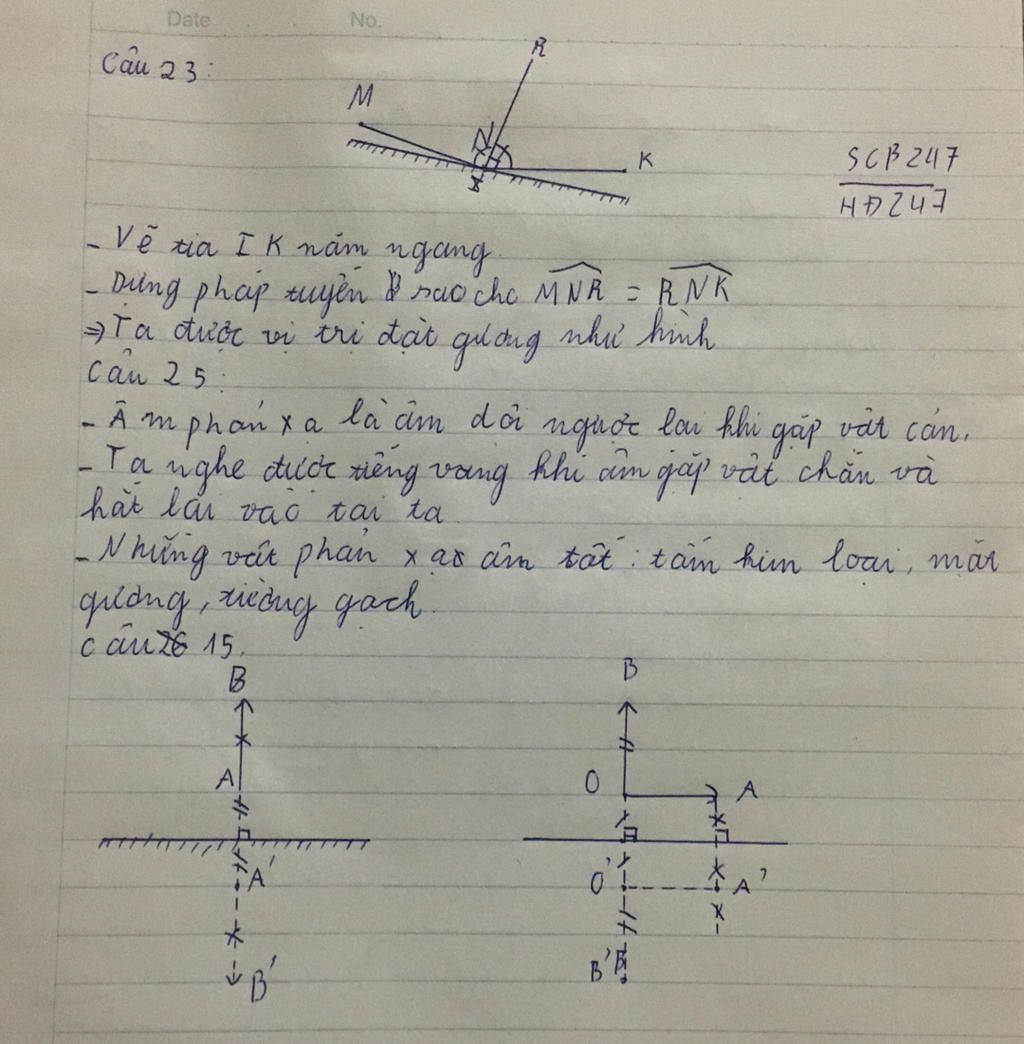 Date No.
Câu 23:
R
M
N
K
I
SCB247
HĐ247
- Vẽ tia IK nằm ngang.
- Dựng pháp tuyến sao cho MNR = RNK
⇒ Ta được vị trị đặt gương như hình
Câu 25:
- Âm phản xạ là âm dội ngược lại khi gặp vật cản.
- Ta nghe được tiếng vang khi âm gặp vật chắn và
hắt lại vào tai ta
- Những vật phản xạ âm tốt: tấm kim loại, mặt
gương, tường gạch.
Câu 15.
B B
A O A
A' O' A'
B' B'